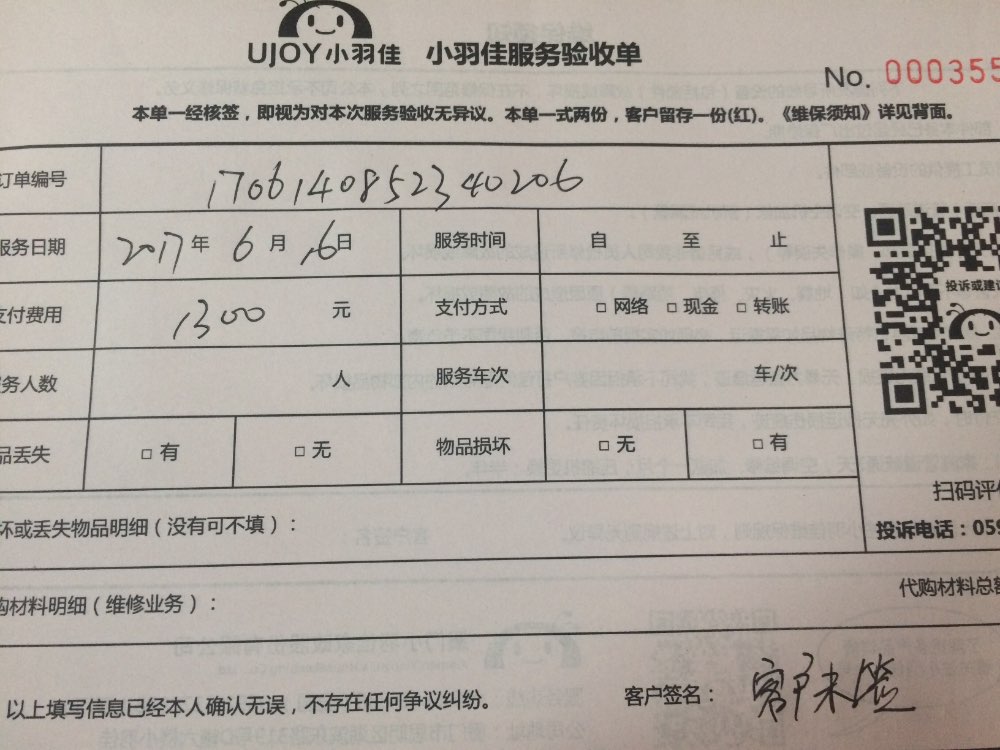 UJOY小羽佳 小羽佳服务验收单
No. 000355
本单一经核签，即视为对本次服务验收无异议。本单一式两份，客户留存一份(红)。《维保须知》详见背面。
订单编号 1706140852340206
服务日期 2017年6月16日 服务时间 自 至 止
支付费用 1300 元 支付方式 □ 网络 □ 现金 □ 转账
务人数 人 服务车次 车/次
品丢失 □ 有 □ 无 物品损坏 □ 无 □ 有
投诉或建议
扫码评价
投诉电话：059
坏或丢失物品明细（没有可不填）：
代购材料总额
购材料明细（维修业务）：
以上填写信息已经本人确认无误，不存在任何争议纠纷。 客户签名： 客户未签